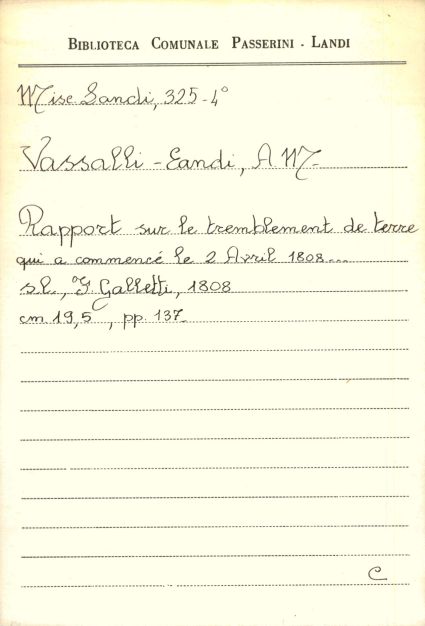 BIBLIOTECA COMUNALE PASSERINI - LANDI
Misc Landi, 325-4°
Vassalli-Eandi, A M-
Rapport sur le tremblement de terre
qui a commencé le 2 Avril 1808...
s.l., F. Galletti, 1808
cm 19,5, pp. 137
C